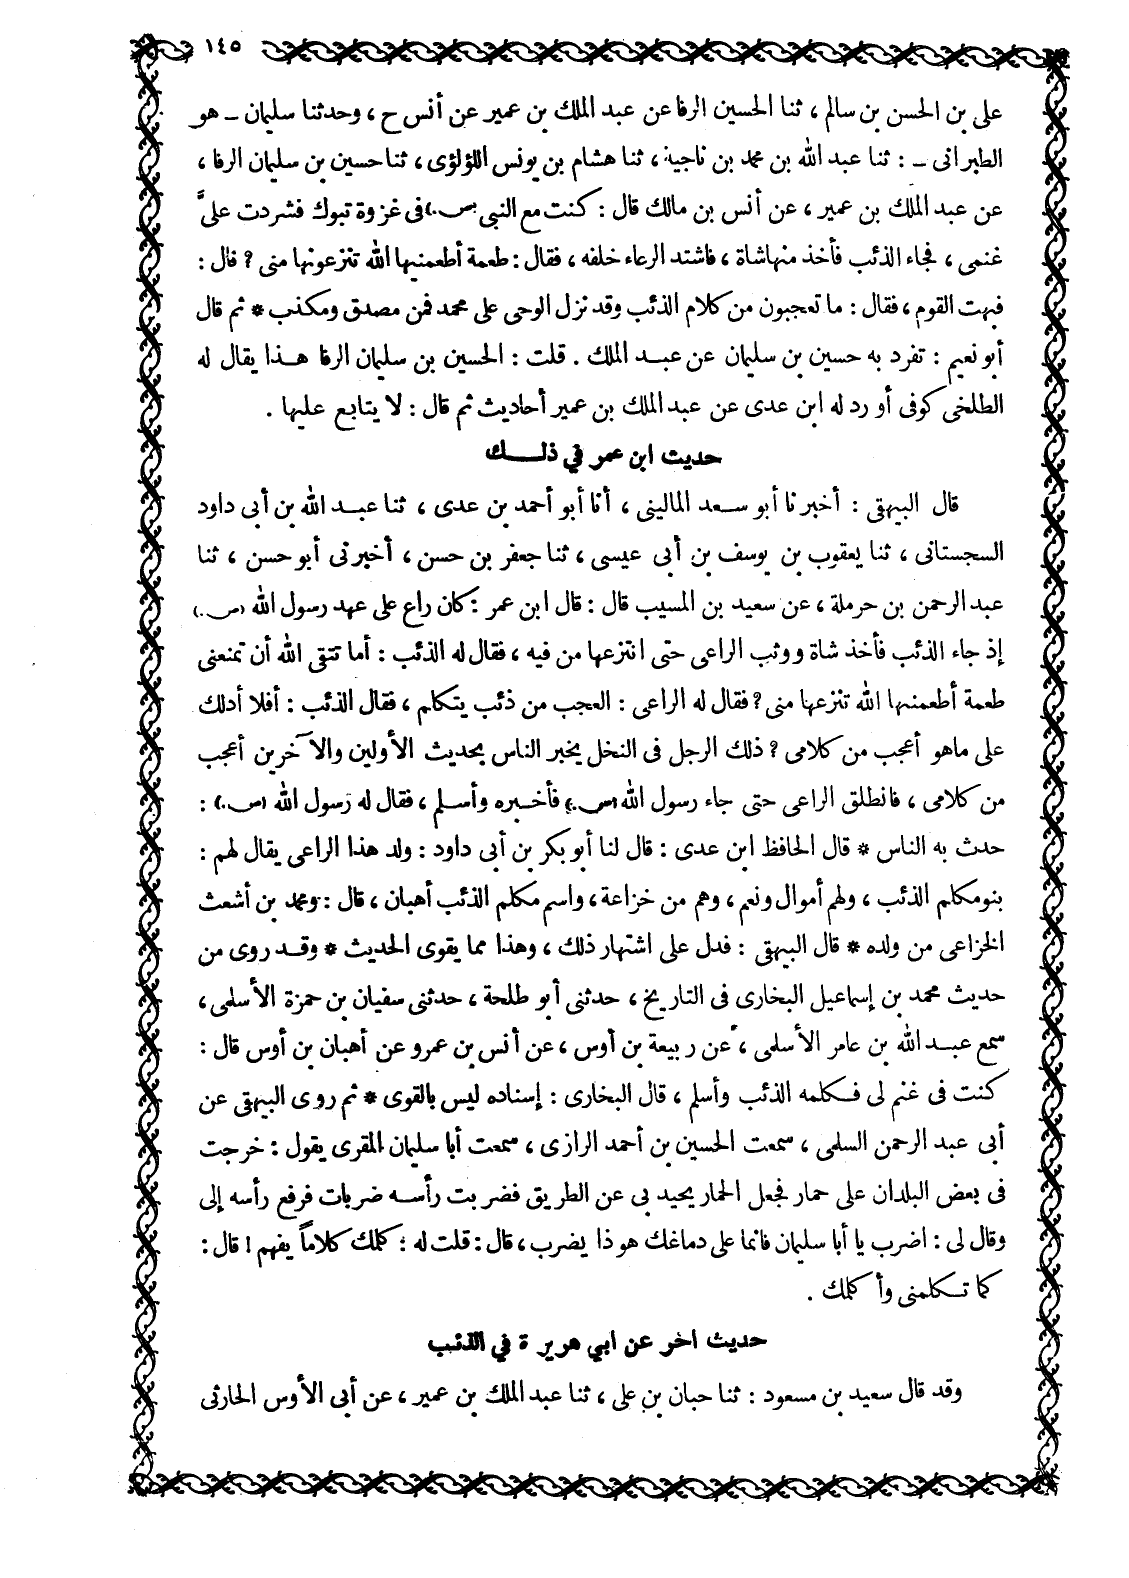 ١٤٥
على بن الحسن بن سالم ، ثنا الحسين الرفا عن عبد الملك بن عمير عن أنس ح ، وحدثنا سليمان ـ هو
الطبرانى ـ : ثنا عبد الله بن محمد بن ناجية ، ثنا هشام بن يونس اللؤلؤى ، ثنا حسين بن سليمان الرفا ،
عن عبد الملك بن عمير ، عن أنس بن مالك قال : كنت مع النبى (ص.) فى غزوة تبوك فشردت علىَّ
غنمى ، فجاء الذئب فأخذ منها شاة ، فاشتد الرعاء خلفه ، فقال : طعمة أطعمنيها الله تنزعونها منى ؟ قال :
فبهت القوم ، فقال : ما تعجبون من كلام الذئب وقد نزل الوحى على محمد فمن مصدق ومكذب * ثم قال
أبو نعيم : تفرد به حسين بن سليمان عن عبد الملك . قلت : الحسين بن سليمان الرفا هذا يقال له
الطلخى كوفى أورد له ابن عدى عن عبد الملك بن عمير أحاديث ثم قال : لا يتابع عليها .
حديث ابن عمر في ذلك
قال البيهقى : أخبرنا أبو سعد المالينى ، أنا أبو أحمد بن عدى ، ثنا عبد الله بن أبى داود
السجستانى ، ثنا يعقوب بن يوسف بن أبى عيسى ، ثنا جعفر بن حسن ، أخبرنى أبو حسن ، ثنا
عبد الرحمن بن حرملة ، عن سعيد بن المسيب قال : قال ابن عمر : كان راع على عهد رسول الله (ص.)
إذ جاء الذئب فأخذ شاة ووثب الراعى حتى انتزعها من فيه ، فقال له الذئب : أما تتقى الله أن تمنعنى
طعمة أطعمنيها الله تنزعها منى ؟ فقال له الراعى : العجب من ذئب يتكلم ، فقال الذئب : أفلا أدلك
على ماهو أعجب من كلامى ؟ ذلك الرجل فى النخل يخبر الناس بحديث الأولين والآخرين أعجب
من كلامى ، فانطلق الراعى حتى جاء رسول الله (ص.) فأخبره وأسلم ، فقال له رسول الله (ص.) :
حدث به الناس * قال الحافظ ابن عدى : قال لنا أبو بكر بن أبى داود : ولد هذا الراعى يقال لهم :
بنو مكلم الذئب ، ولهم أموال ونعم ، وهم من خزاعة ، واسم مكلم الذئب أهبان ، قال : ومحمد بن أشعث
الخزاعى من ولده * قال البيهقى : فدل على اشتهار ذلك ، وهذا مما يقوى الحديث * وقد روى من
حديث محمد بن إسماعيل البخارى فى التاريخ ، حدثنى أبو طلحة ، حدثنى سفيان بن حمزة الأسلمى ،
سمع عبد الله بن عامر الأسلمى ، عن ربيعة بن أوس ، عن أنس بن عمرو عن أهبان بن أوس قال :
كنت فى غنم لى فكلمه الذئب وأسلم ، قال البخارى : إسناده ليس بالقوى * ثم روى البيهقى عن
أبى عبد الرحمن السلمى ، سمعت الحسين بن أحمد الرازى ، سمعت أبا سليمان المقرى يقول : خرجت
فى بعض البلدان على حمار فجعل الحمار يحيد بى عن الطريق فضربت رأسه ضربات فرفع رأسه إلى
وقال لى : اضرب يا أبا سليمان فانما على دماغك هو ذا يضرب ، قال : قلت له : كلمك كلاماً يفهم ! قال :
كما تكلمنى وأكلمك .
حديث اخر عن ابي هريرة في الذئب
وقد قال سعيد بن مسعود : ثنا حبان بن على ، ثنا عبد الملك بن عمير ، عن أبى الأوس الحارثى